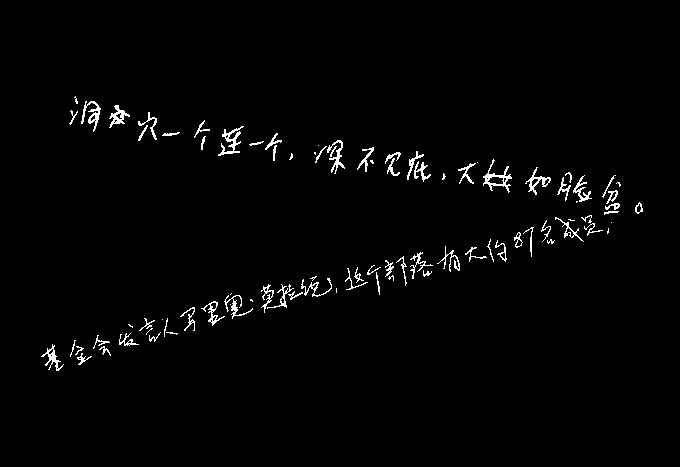 洞穴一个连一个，深不见底，大如脸盆。
基金会发言人写里奥·莫拉说，这个部落有大约87名成员；